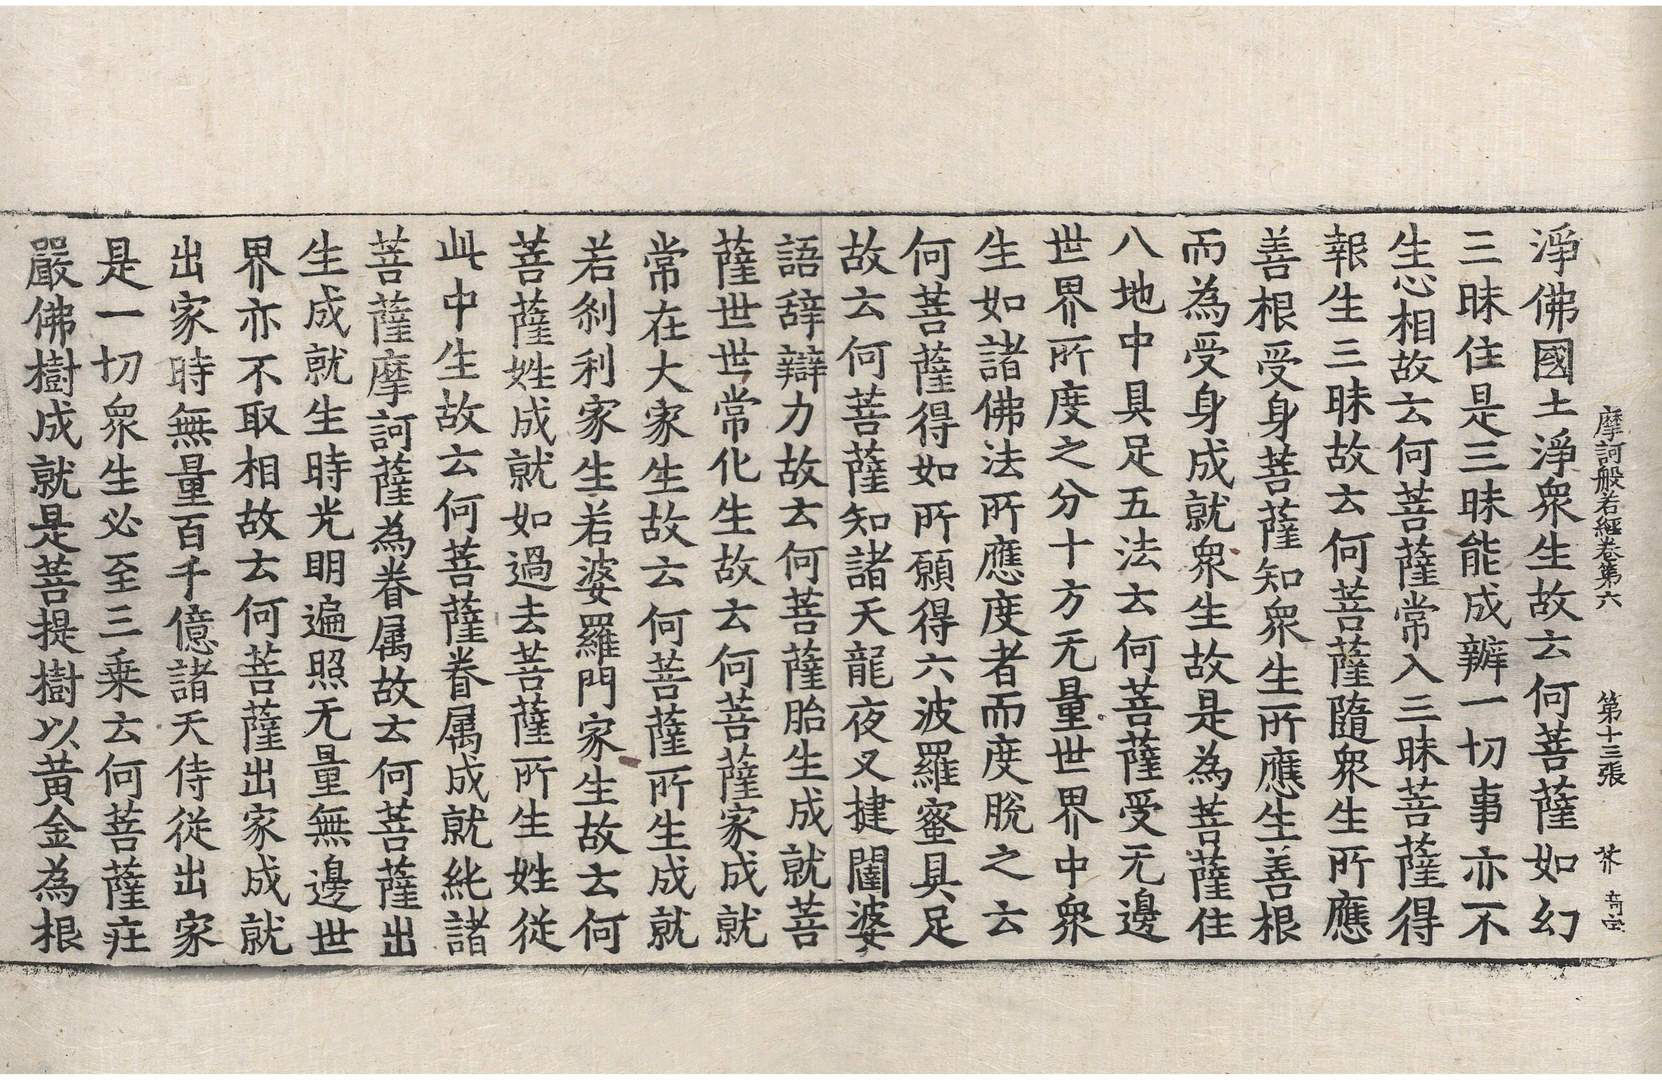 摩訶般若經卷第六　第十三張　芥
淨佛國土淨衆生故云何菩薩如幻
三昧住是三昧能成辦一切事亦不
生心相故云何菩薩常入三昧菩薩得
報生三昧故云何菩薩隨衆生所應
善根受身菩薩知衆生所應生善根
而為受身成就衆生故是為菩薩住
八地中具足五法云何菩薩受无邊
世界所度之分十方无量世界中衆
生如諸佛法所應度者而度脫之云
何菩薩得如所願得六波羅蜜具足
故云何菩薩知諸天龍夜叉揵闥婆
語辭辯力故云何菩薩胎生成就菩
薩世世常化生故云何菩薩家成就
常在大家生故云何菩薩所生成就
若剎利家生若婆羅門家生故云何
菩薩姓成就如過去菩薩所生姓從
此中生故云何菩薩眷属成就純諸
菩薩摩訶薩為眷属故云何菩薩出
生成就生時光明遍照无量無邊世
界亦不取相故云何菩薩出家成就
出家時無量百千億諸天侍從出家
是一切衆生必至三乗云何菩薩莊
嚴佛樹成就是菩提樹以黃金為根